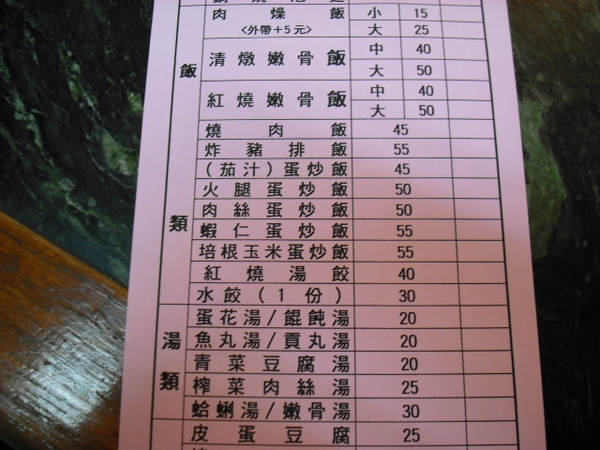 肉燥飯 小 15
<外帶+5元> 大 25
飯類
清燉嫩骨飯 中 40
大 50
紅燒嫩骨飯 中 40
大 50
燒肉飯 45
炸豬排飯 55
(茄汁)蛋炒飯 45
火腿蛋炒飯 50
肉絲蛋炒飯 50
蝦仁蛋炒飯 55
培根玉米蛋炒飯 55
紅燒湯餃 40
水餃(1份) 30
湯類
蛋花湯/餛飩湯 20
魚丸湯/貢丸湯 20
青菜豆腐湯 20
榨菜肉絲湯 25
蛤蜊湯/嫩骨湯 30
皮蛋豆腐 25